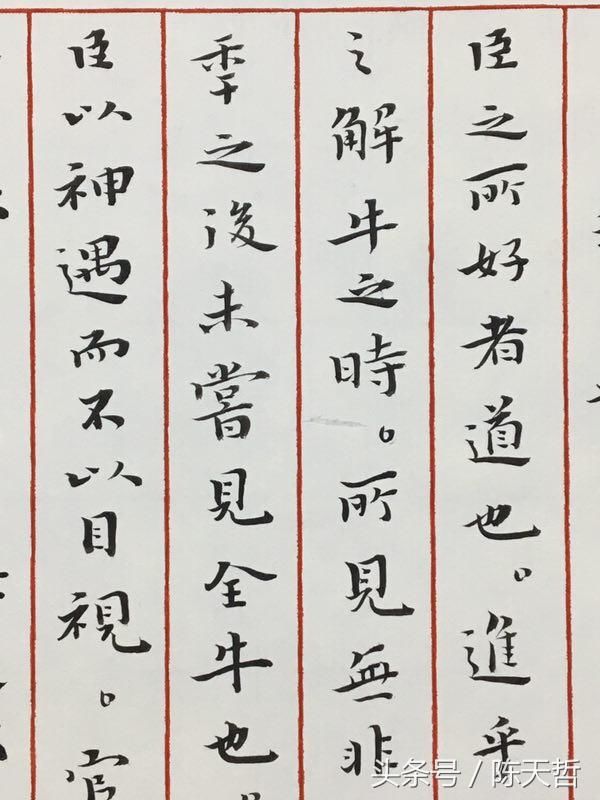 臣之所好者道也。進乎
之解牛之時。所見無非
秊之後未嘗見全牛也。
臣以神遇而不以目視。官
头条号 / 陈天哲